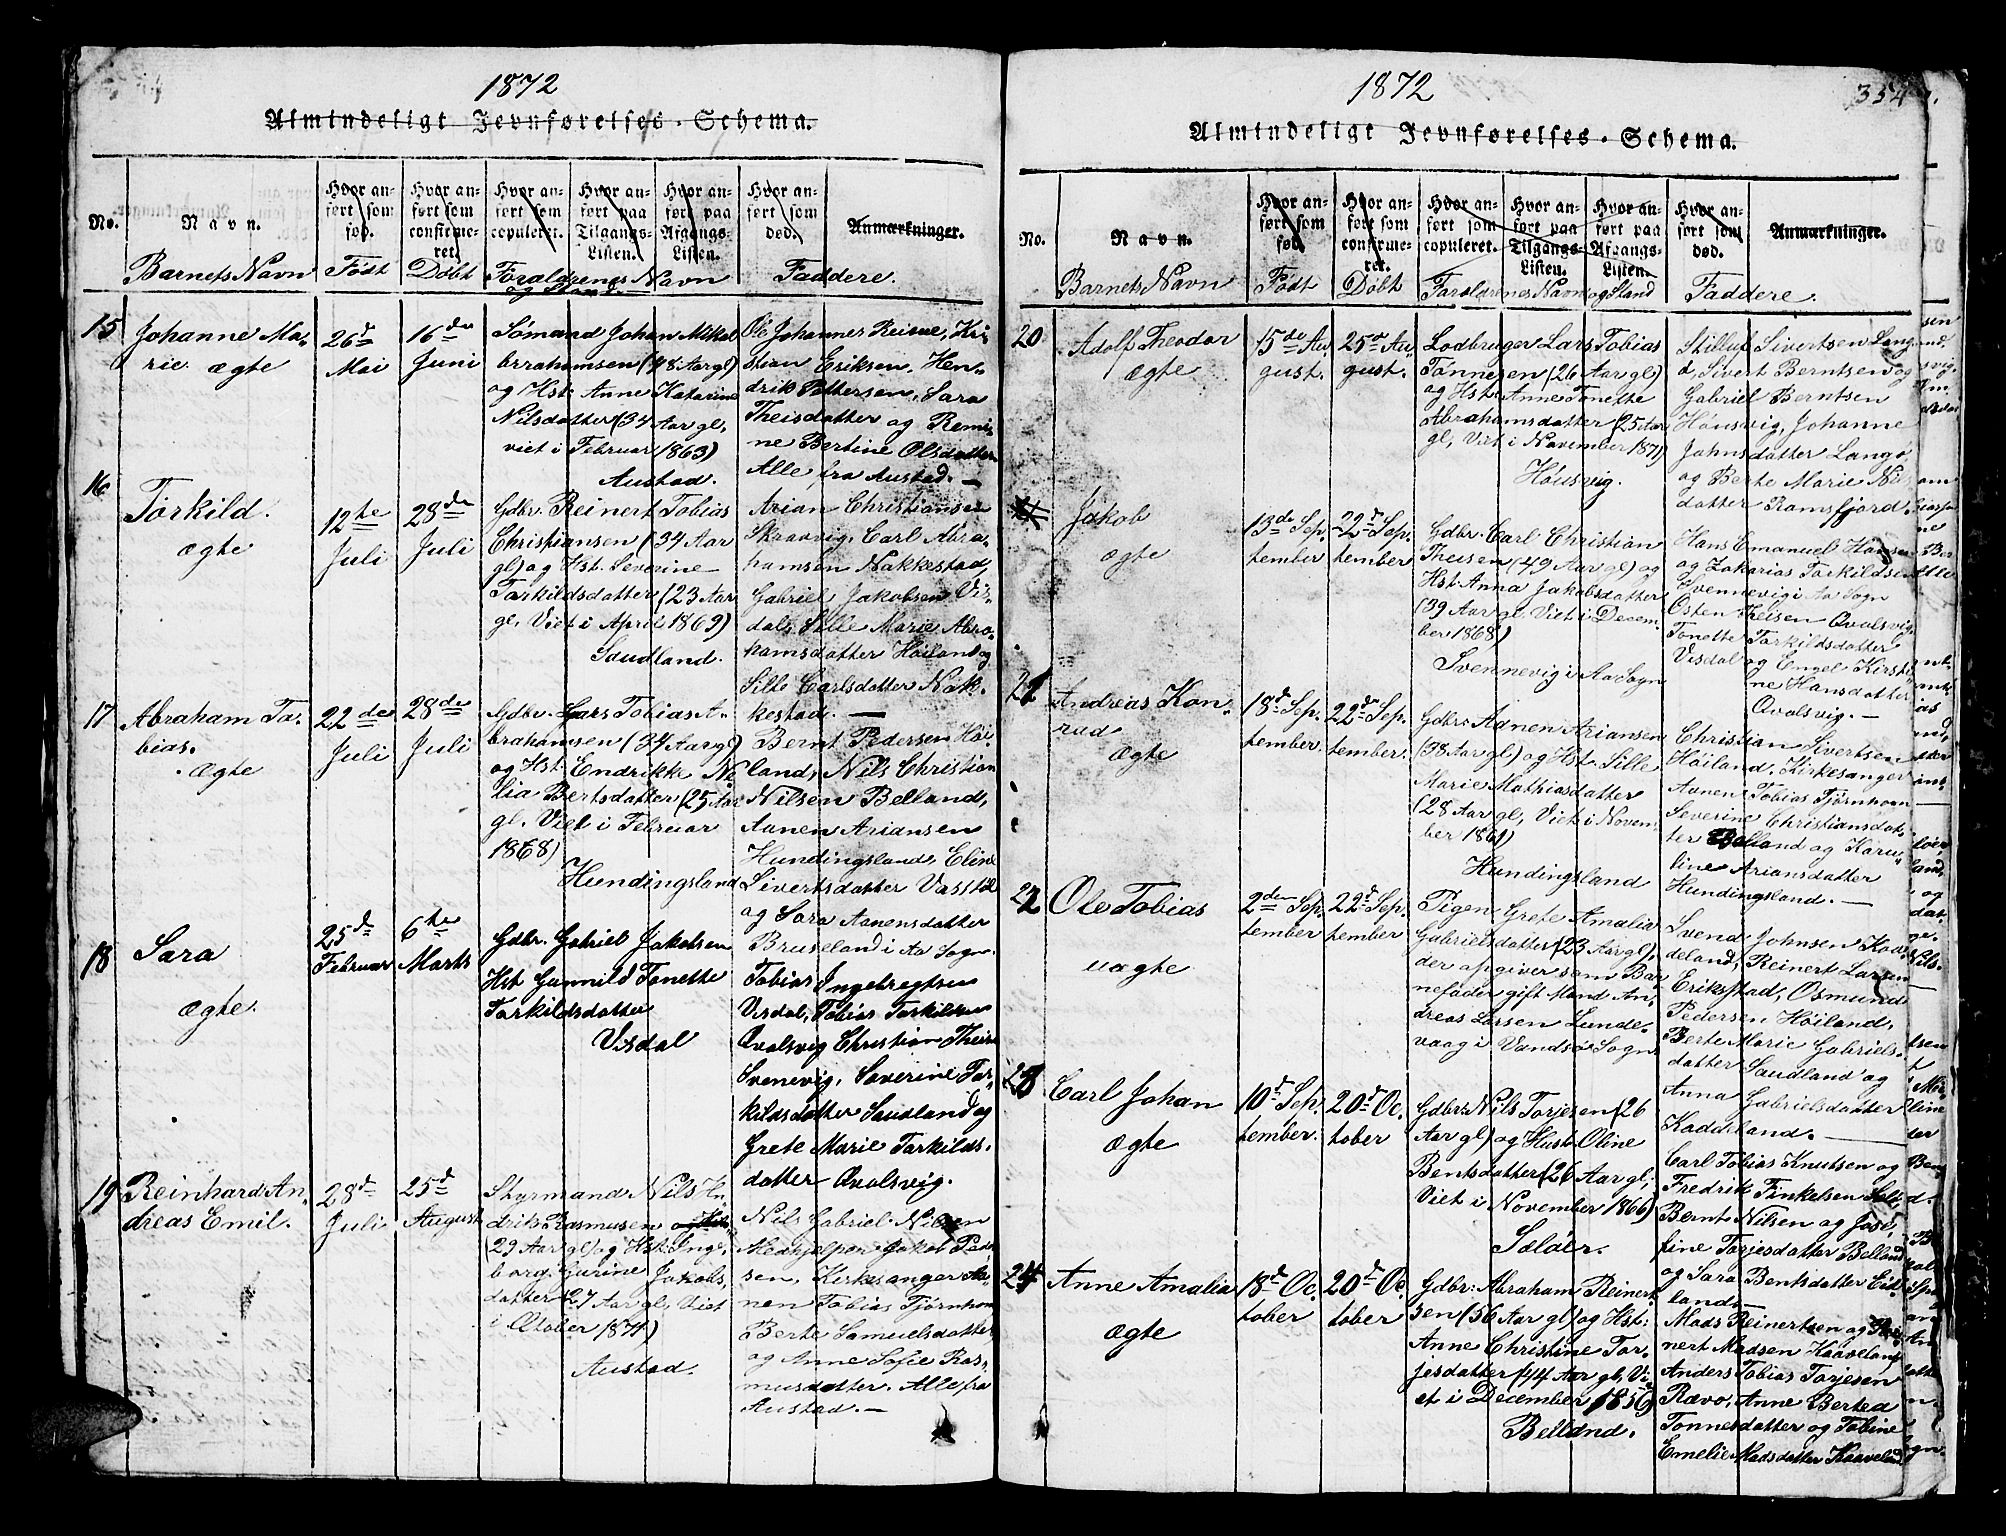 1872
Almindeligt Jevnførelses-Schema.
No.
Navn.
Hvor anført som fød.
Hvor anført som confirmeret.
Hvor anført som copuleret.
Hvor anført paa Tilgangs-Listen.
Hvor anført paa Afgangs-Listen.
Hvor anført som død.
Anmærkninger.
Barnets Navn
Født
Døbt
Forældrenes Navn
og Stand
Faddere.
15
Johanne Ma-
rie. ægte
26d
Mai
16de
Juni
Sømand Johan Mikal
brahamsen (48 Aar gl)
og Hst. Anne Katarine
Nilsdatter (34 Aar gl,
viet i Februar 1863)
Austad.
Ole Johannes Reisne, Kri-
stian Eriksen, Hen-
drik Pettersen, Sara
Theisdatter og Remi-
ne Bertine Olsdatter
Alle fra Austad. —
16
Torkild.
ægte
12te
Juli
28de
Juli
Gdbr. Reinert Tobias
Christiansen (34 Aar
gl) og Hst. Severine
Torkildsdatter (23 Aar
gl, Viet i April 1869)
Saudland.
Arian Christiansen
Skraavig, Carl Abra-
hamsen Nakkestad,
Gabriel Jakobsen Vis-
dal, Sille Marie Abra-
hamsdatter Høiland og
Sille Carlsdatter Nak-
kestad. —
17
Abraham To-
bias.
ægte
22de
Juli
28de
Juli
Gdbr. Lars Tobias A-
brahamsen (34 Aar gl)
og Hst. Endrikke No
lia Bertsdatter (25 Aar
gl, Viet i Februar
1868)
Hundingsland
Bernt Pedersen Høi-
land, Nils Christian
Nilsen Belland,
Aanen Ariansen
Hundingsland, Eline
Sivertsdatter Vasstøl
og Sara Aanensdatter
Bruseland i Aa Sogn.
18
Sara
ægte.
25d
Februar
6te
Marts
Gdbr. Gabriel Jakobsen
Hst Gunnild Tonette
Torkildsdatter
Visdal
Tobias Ingebregtsen
Visdal, Tobias Torkildsen
Qvalsvig Christian Theisen
Svenevig, Severine Tor-
kildsdatter Saudland og
Grete Marie Torkilds-
datter Qvalsvig.
19
Reinhard An-
dreas Emil.
28d
Juli
25d
August
Styrmand Nils Hn-
drik Rasmusen
(29 Aar gl) og Hst. Inge-
borg Gurine Jakobs-
datter (27 Aar gl, Viet
i October 1871)
Austad.
Nils Gabriel Nilsen
Medhjelper Jakob Peder-
sen, Kirkesanger Aa-
nen Tobias Tjørnhom
Berte Samuelsdatter
og Anne Sofie Ras-
musdatter. Alle fra
Austad. —
1872
354
Almindeligt Jevnførelses-Schema.
No.
Navn.
Hvor anført som fød.
Hvor anført som confirmeret.
Hvor anført som copuleret.
Hvor anført paa Tilgangs-Listen.
Hvor anført paa Afgangs-Listen.
Hvor anført som død.
Anmærkninger.
Barnets Navn
Født
Døbt
Forældrenes Navn og Stand
Faddere.
20
Adolf Theodor
ægte
15de Au-
gust.
25d Au-
gust.
Lodbruger Lars Tobias
Tønnesen (26 Aar gl)
og Hst. Anne Tonette
Abrahamsdatter (25 Aar
gl, Viet i November 1871)
Høusvig.
Sivertsen Lang
Sivert Berntsen og
Gabriel Berntsen
Høusvig, Johanne
Johnsdatter Langø,
og Berte Marie Nils
datter Ramsfjord.
Jakob
ægte
13de Sep-
tember
22d Sep-
tember
Gdbr. Carl Christian
Theisen (49 Aar gl) og
Hst. Anna Jakobsdatter
(39 Aar gl, Viet i Decem-
ber 1868)
Svennevig i Aa Sogn
Hans Emanuel Hansen
og Zakarias Torkildsen
Svennevig i Aa Sogn
Osten Theisen Qvalsvig,
Tonette Torkildsdatter
Visdal og Engel Kirsti-
ne Hansdatter
Qvalsvig. —
Andreas Kon-
rad
ægte
18d Sep-
tember.
22d Sep-
tember.
Gdbr. Aanen Ariansen
(38 Aar gl) og Hst. Sille
Marie Mathiasdatter
(28 Aar gl, Viet i Novem-
ber 1861)
Hundingsland
Christian Sivertsen
Høiland, Kirkesanger
Aanen Tobias Tjørnhom
Severine Christiansdat-
ter Belland og Karo-
line Ariansdatter
Hundingsland. —
22
Ole Tobias
uægte
2den Sep-
tember
22d Sep-
tember
Pigen Grete Amalia
Gabrielsdatter (23 Aar gl),
der opgiver som Bar-
nefader gift Mand An-
dreas Larsen Lunde-
vaag i Vandsø Sogn
Svend Johnsen Kad-
deland, Reinert Larsen
Erikstad, Osmund
Pedersen Høiland,
Berte Marie Gabriels-
datter Saudland og
Anna Gabrielsdatter
Kaddeland. —
23
Carl Johan
ægte
10d Sep-
tember.
20d Oc-
tober
Gdbr. Nils Torjesen (26
Aar gl) og Hust. Oline
Bentsdatter (26 Aar gl,
Viet i November 1866)
Sæløer.
Carl Tobias Knutsen og
Fredrik Finkelsen
Bernt Nilsen og Jose-
fine Torjesdatter Belland
og Sara Bentsdatter Eid-
land. —
24
Anne Amalia
ægte
18d Oc-
tober
20d Oc-
tober
Gdbr. Abraham Reinert-
sen (56 Aar gl) og Hst.
Anne Christine Tor-
jesdatter (44 Aar gl, Vi-
et i December 1850)
Belland.
Mads Reinertsen og Rei-
nert Madsen Kaaveland
Anders Tobias Torjesen
Rævø, Anne Bertea
Tønnesdatter og Tobine
Emelie Madsdatter Kaaveland